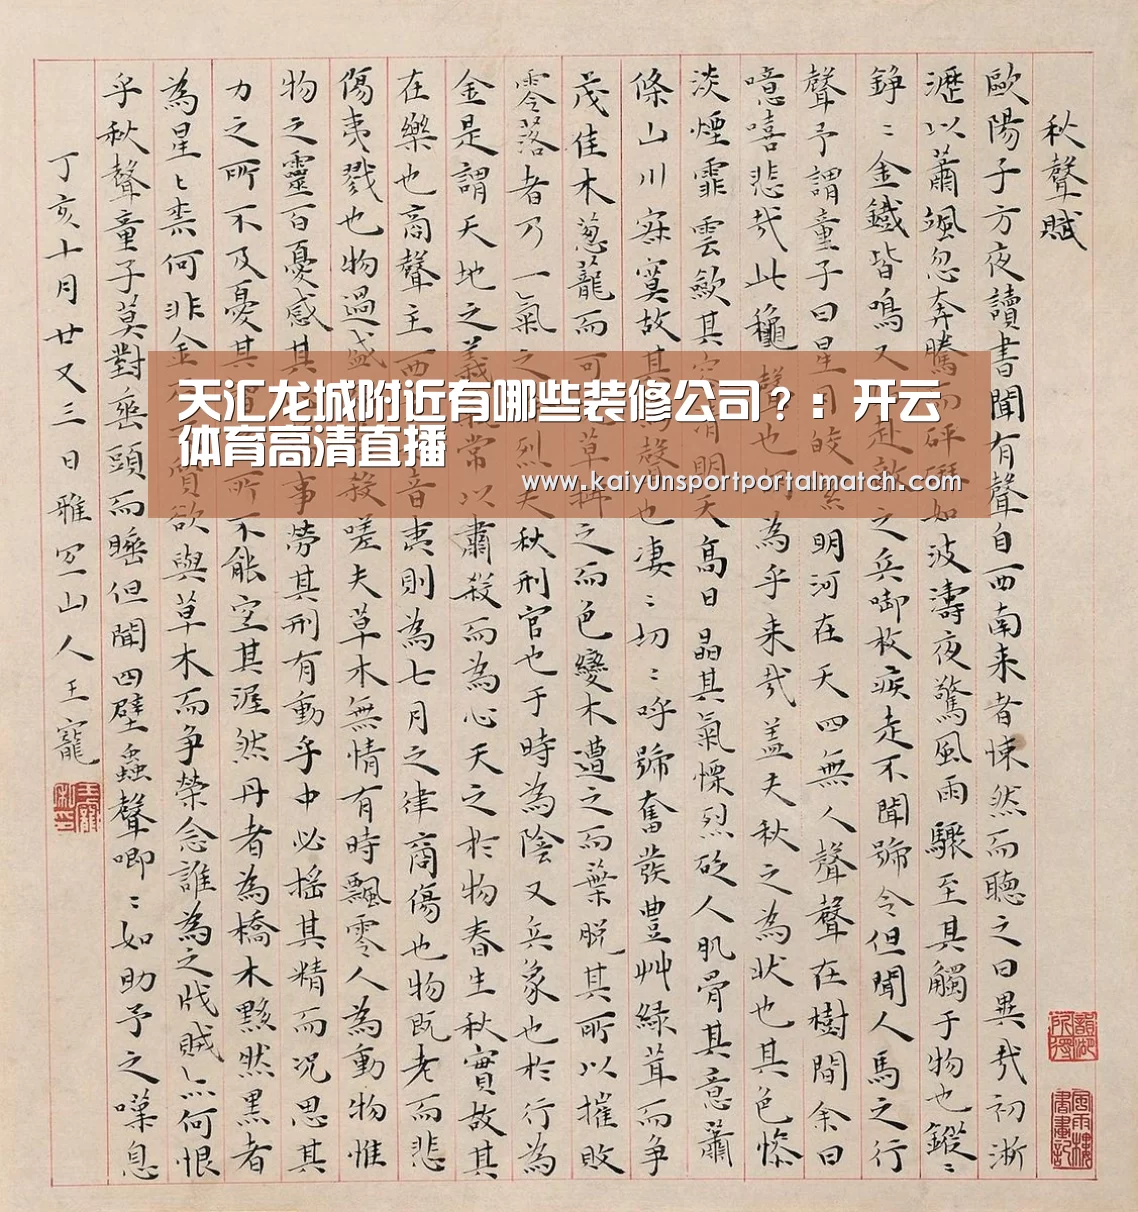 秋聲賦
歐陽子方夜讀書聞有聲自西南来者悚然而聽之曰異哉初淅
瀝以蕭颯忽奔騰而砰湃如波濤夜驚風雨驟至其觸于物也鏦〻
錚〻金鐵皆鳴又赴敵之兵啣枚疾走不聞號令但聞人馬之行
聲予謂童子曰星月皎絜明河在天四無人聲聲在樹間余曰
噫嘻悲哉此穐聲也胡為乎来哉盖夫秋之為状也其色惨
淡煙霏雲歛其容清明天高日晶其氣慄烈砭人肌骨其意蕭
條山川寂寞故其為聲也凄〻切〻呼號奮發豊艸緑茸而争
茂佳木葱蘢而可草拂之而色變木遭之而葉脱其所以摧敗
零落者乃一氣之烈夫秋刑官也于時為陰又兵象也於行為
金是謂天地之義常以肅殺而為心天之於物春生秋實故其
在樂也商聲主西音夷則為七月之律商傷也物既老而悲
傷夷戮也物過盛殺嗟夫草木無情有時飄零人為動物惟
物之靈百憂感其事勞其刑有動乎中必揺其精而况思其
力之所不及憂其所不能宜其渥然丹者為槁木黟然黒者
為星〻奈何非金質欲與草木而争榮念誰為之戕賊亦何恨
乎秋聲童子莫對垂頭而睡但聞四壁蟲聲唧〻如助予之嘆息
丁亥十月廿又三日雅宜山人王寵
天汇龙城附近有哪些装修公司？：开云
体育高清直播
www.kaiyunsportportalmatch.com